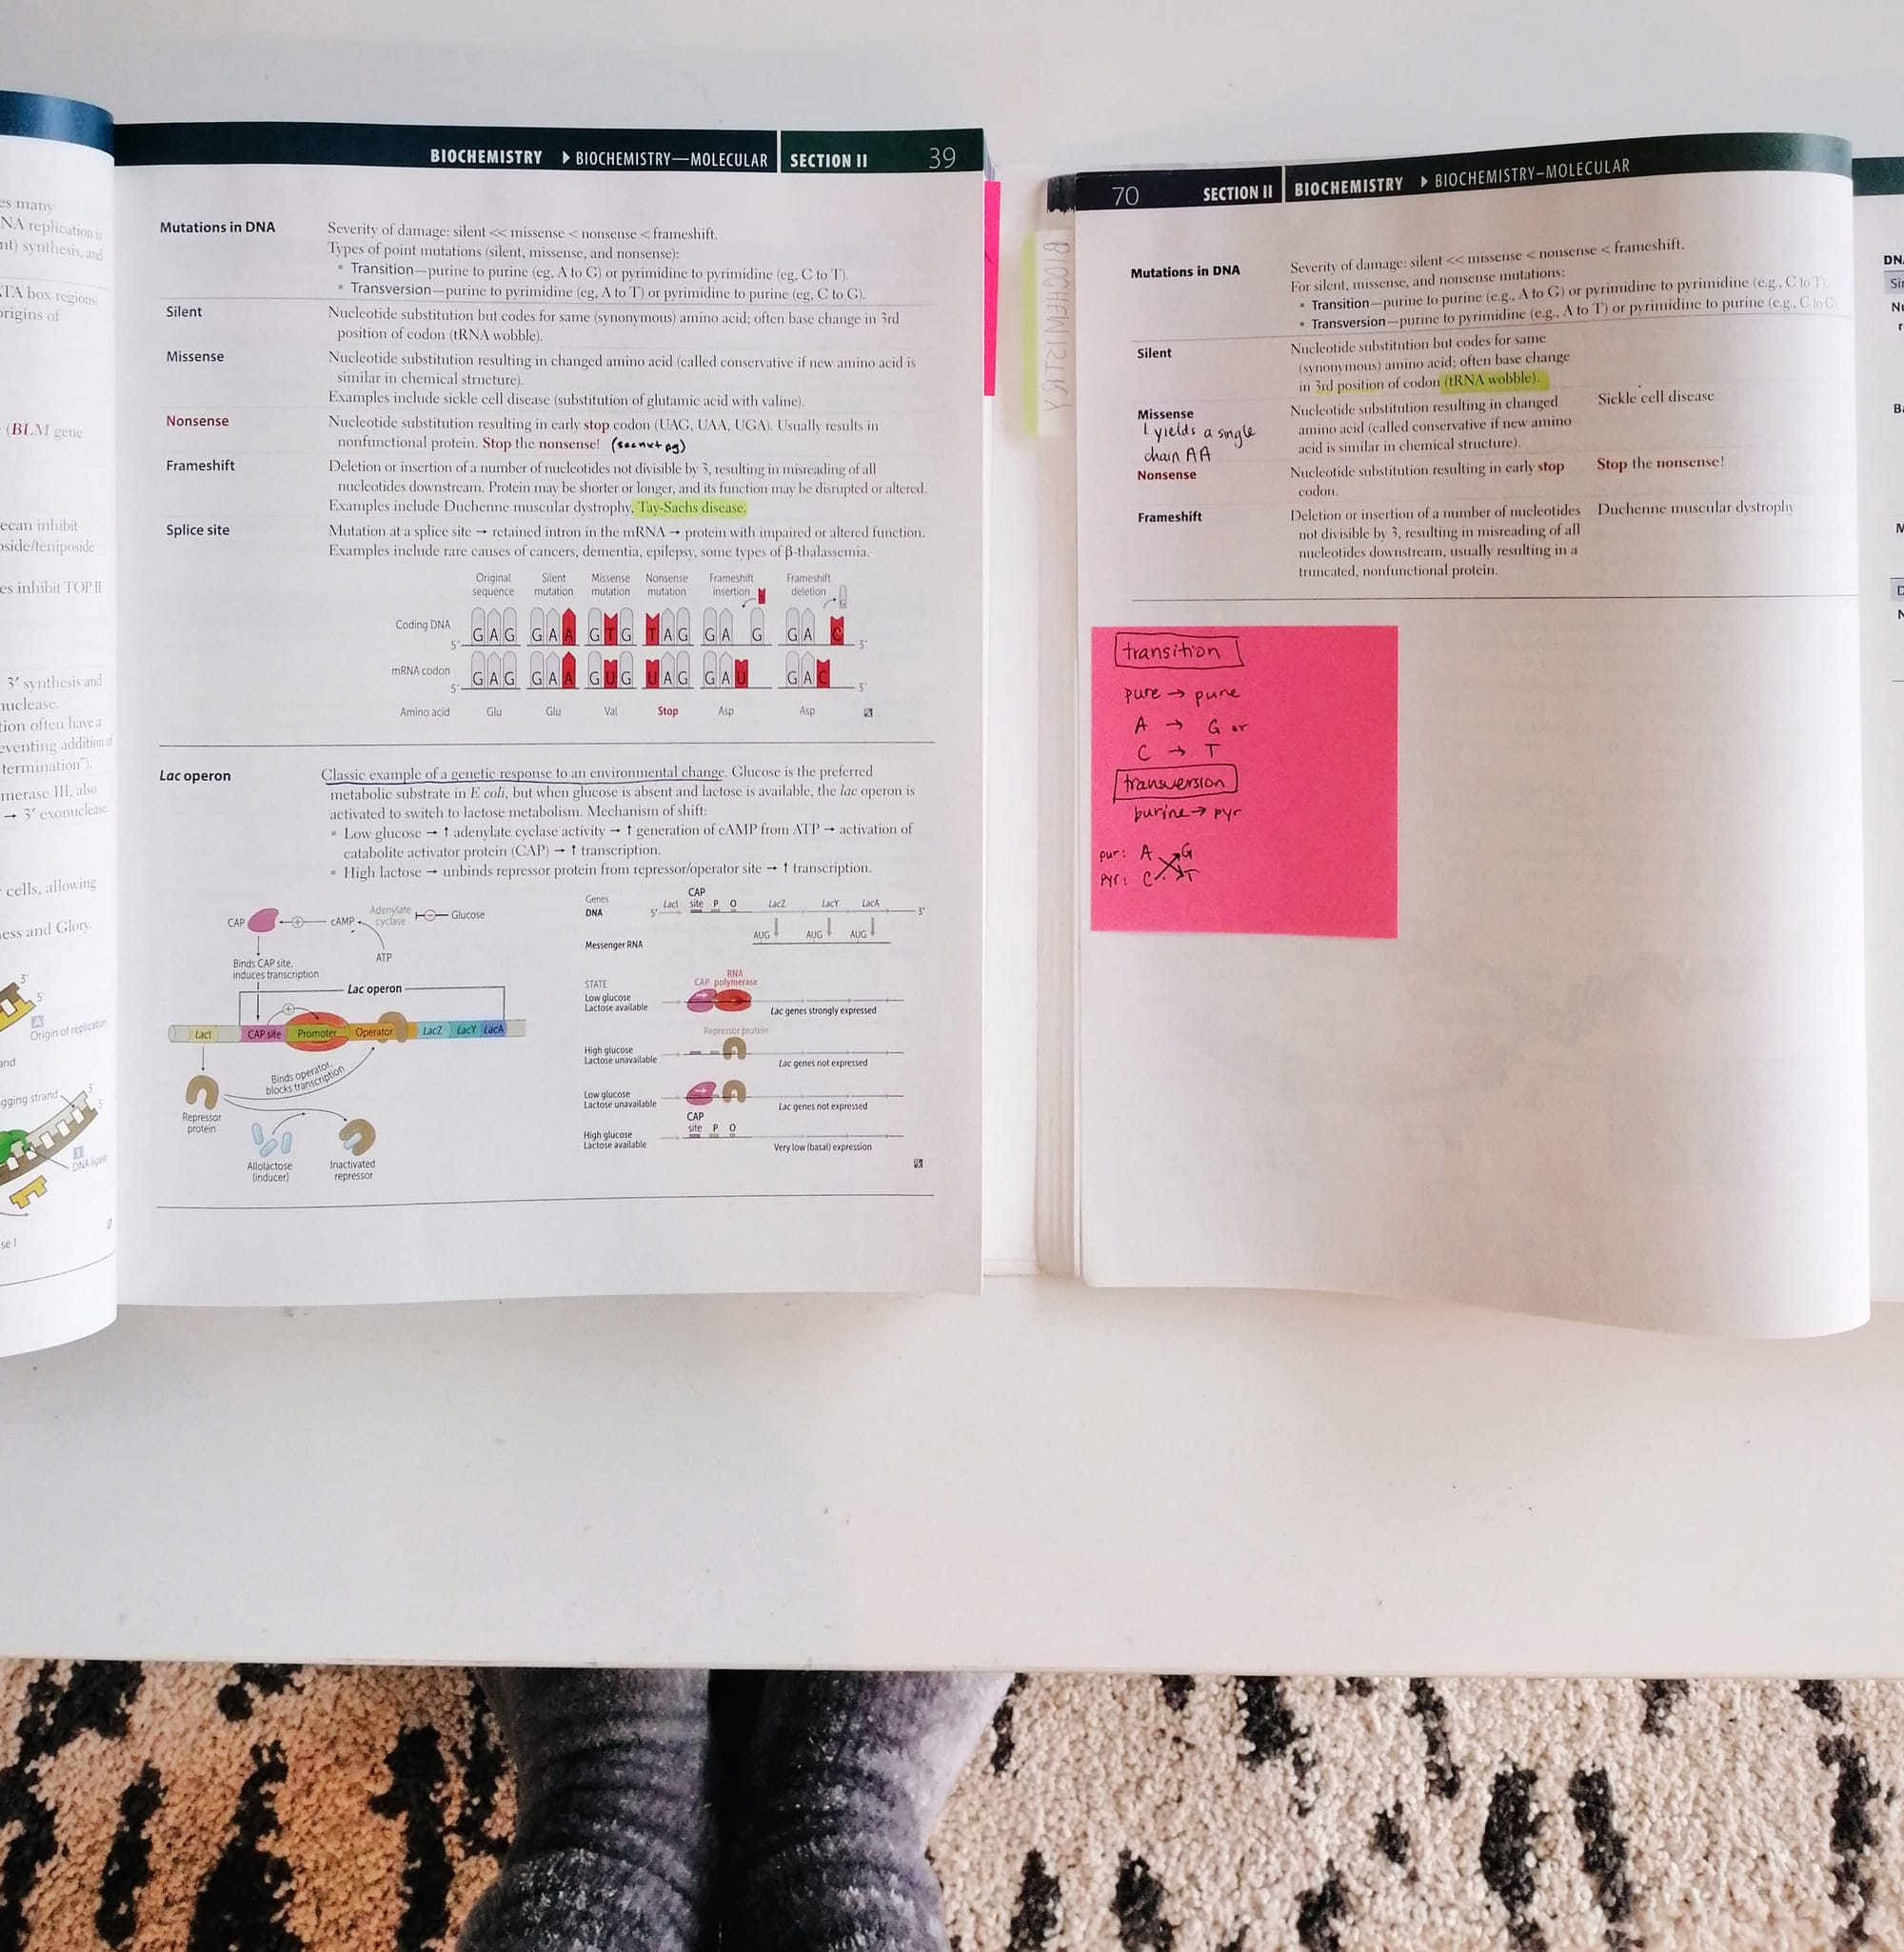 es many
NA replication is
nt) synthesis, and
TA box regions)
origins of
(BLM gene
ecan inhibit
oside/teniposide
es inhibit TOP II
3′ synthesis and
nuclease.
tion often have a
eventing addition of
termination”).
merase III, also
→ 3′ exonuclease.
cells, allowing
ess and Glory.
3′
5′
A
Origin of replication
and
gging strand
3′
5′
I
DNA ligase
se I
BIOCHEMISTRY ▶ BIOCHEMISTRY—MOLECULAR SECTION II 39
Mutations in DNA Severity of damage: silent << missense < nonsense < frameshift.
Types of point mutations (silent, missense, and nonsense):
▪ Transition—purine to purine (eg, A to G) or pyrimidine to pyrimidine (eg, C to T).
▪ Transversion—purine to pyrimidine (eg, A to T) or pyrimidine to purine (eg, C to G).
Silent Nucleotide substitution but codes for same (synonymous) amino acid; often base change in 3rd
position of codon (tRNA wobble).
Missense Nucleotide substitution resulting in changed amino acid (called conservative if new amino acid is
similar in chemical structure).
Examples include sickle cell disease (substitution of glutamic acid with valine).
Nonsense Nucleotide substitution resulting in early stop codon (UAG, UAA, UGA). Usually results in
nonfunctional protein. Stop the nonsense! (see nxt pg)
Frameshift Deletion or insertion of a number of nucleotides not divisible by 3, resulting in misreading of all
nucleotides downstream. Protein may be shorter or longer, and its function may be disrupted or altered.
Examples include Duchenne muscular dystrophy, Tay-Sachs disease.
Splice site Mutation at a splice site → retained intron in the mRNA → protein with impaired or altered function.
Examples include rare causes of cancers, dementia, epilepsy, some types of β-thalassemia.
Original Silent Missense Nonsense Frameshift Frameshift
sequence mutation mutation mutation insertion deletion
Coding DNA
5′ G A G G A A G T G T A G G A G G A C 3′
mRNA codon
5′ G A G G A A G U G U A G G A U G A C 3′
Amino acid Glu Glu Val Stop Asp Asp
Lac operon Classic example of a genetic response to an environmental change. Glucose is the preferred
metabolic substrate in E coli, but when glucose is absent and lactose is available, the lac operon is
activated to switch to lactose metabolism. Mechanism of shift:
▪ Low glucose → ↑ adenylate cyclase activity → ↑ generation of cAMP from ATP → activation of
catabolite activator protein (CAP) → ↑ transcription.
▪ High lactose → unbinds repressor protein from repressor/operator site → ↑ transcription.
CAP + cAMP Adenylate
cyclase − Glucose
ATP
Binds CAP site,
induces transcription
Lac operon
+
LacI CAP site Promoter Operator LacZ LacY LacA
Binds operator,
blocks transcription
Repressor
protein
Allolactose
(inducer)
Inactivated
repressor
Genes CAP
DNA 5′ LacI site P O LacZ LacY LacA 3′
AUG AUG AUG
Messenger RNA
STATE CAP RNA
polymerase
Low glucose
Lactose available
Lac genes strongly expressed
Repressor protein
High glucose
Lactose unavailable
Lac genes not expressed
Low glucose
Lactose unavailable
Lac genes not expressed
CAP
site P O
High glucose
Lactose available
Very low (basal) expression
BIOCHEMISTRY
70 SECTION II BIOCHEMISTRY ▶ BIOCHEMISTRY–MOLECULAR
Mutations in DNA Severity of damage: silent << missense < nonsense < frameshift.
For silent, missense, and nonsense mutations:
▪ Transition—purine to purine (e.g., A to G) or pyrimidine to pyrimidine (e.g., C to T).
▪ Transversion—purine to pyrimidine (e.g., A to T) or pyrimidine to purine (e.g., C to G).
Silent Nucleotide substitution but codes for same
(synonymous) amino acid; often base change
in 3rd position of codon (tRNA wobble).
Missense Nucleotide substitution resulting in changed Sickle cell disease
amino acid (called conservative if new amino
acid is similar in chemical structure).
yields a single
chain AA
Nonsense Nucleotide substitution resulting in early stop Stop the nonsense!
codon.
Frameshift Deletion or insertion of a number of nucleotides Duchenne muscular dystrophy
not divisible by 3, resulting in misreading of all
nucleotides downstream, usually resulting in a
truncated, nonfunctional protein.
transition
pure → pune
A → G or
C → T
transversion
purine → pyr
pur: A G
pyr: C T
DNA